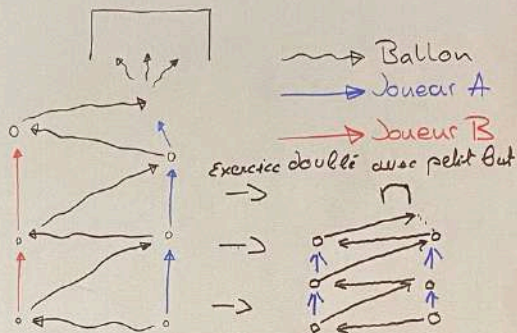 Ballon
Joueur A
Joueur B
Exercice doublé avec petit but